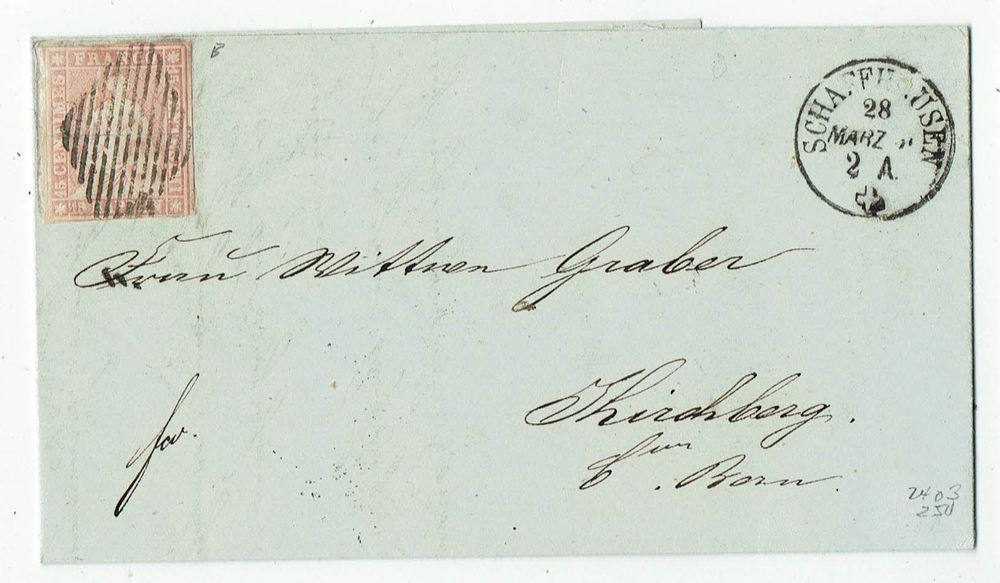 FRANCO
15 CENTIMES
SCHAFFHAUSEN
28
MÄRZ
2 A.
Frau Wittwen Graber
Kirchberg.
Bern.
fco.
2403
250
B